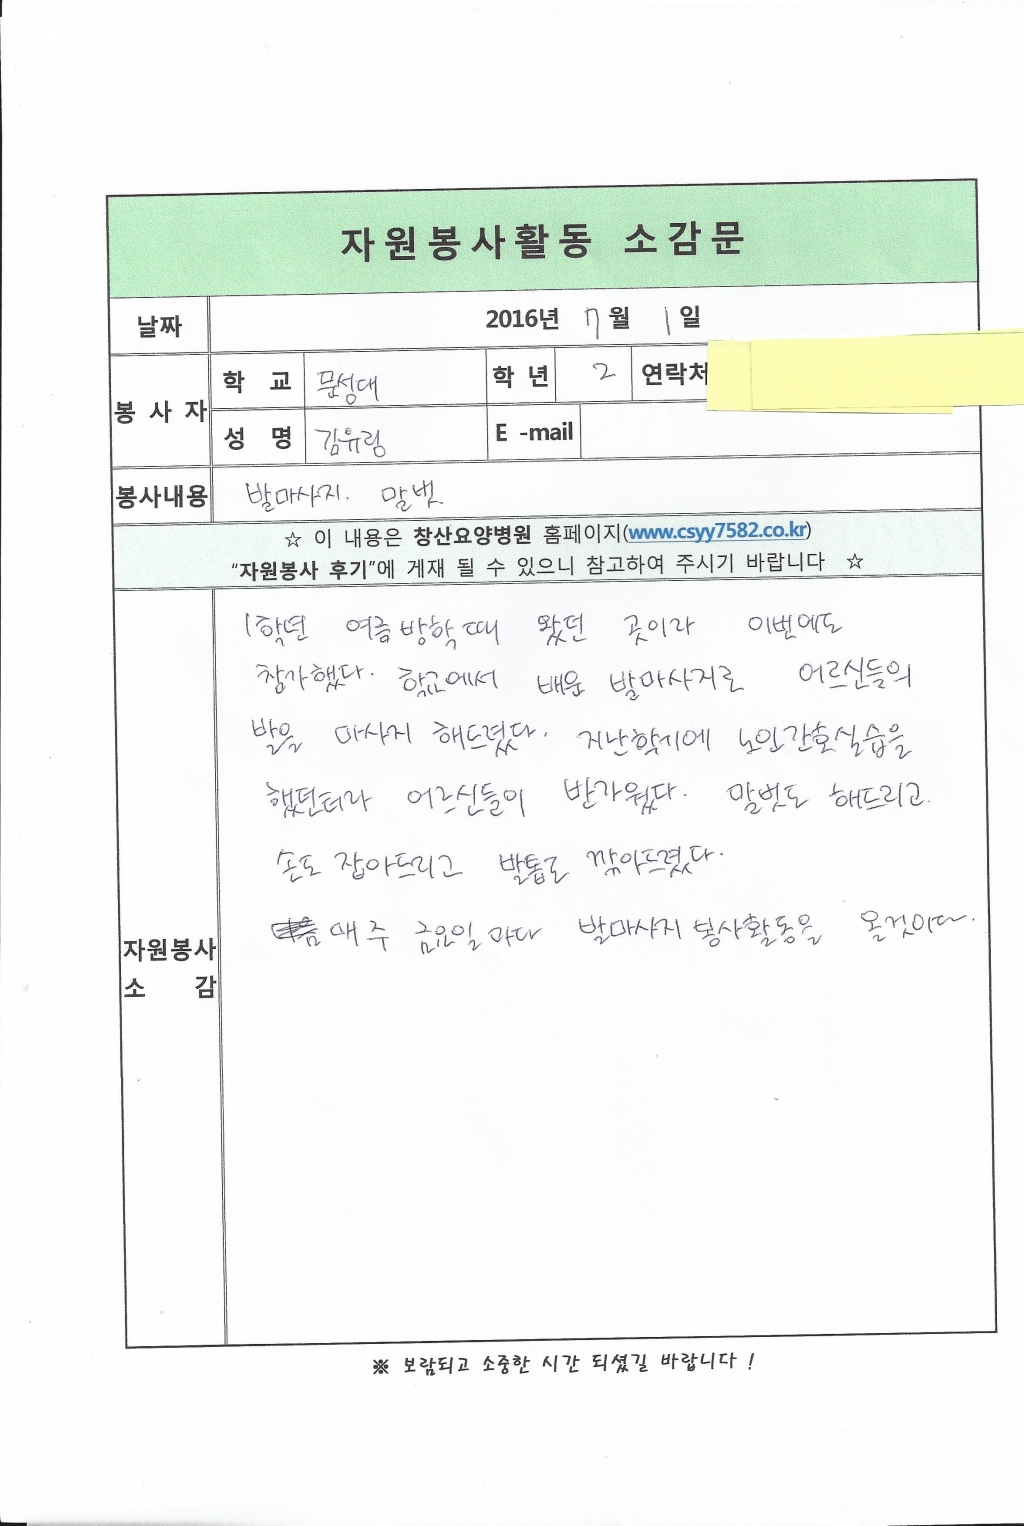 자원봉사활동 소감문
날짜 2016년 7월 1일
봉사자 학교 문성대 학년 2 연락처
성명 김유림 E-mail
봉사내용 발마사지. 말벗.
☆ 이 내용은 창산요양병원 홈페이지(www.csyy7582.co.kr)
"자원봉사 후기"에 게재 될 수 있으니 참고하여 주시기 바랍니다 ☆
자원봉사 소감
1학년 여름방학때 왔던 곳이라 이번에도
참가했다. 학교에서 배운 발마사지로 어르신들의
발을 마사지 해드렸다. 지난학기에 노인간호실습을
했던터라 어르신들이 반가웠다. 말벗도 해드리고.
손도 잡아드리고 발톱도 깎아드렸다.
매주 금요일 마다 발마사지 봉사활동을 올것이다.
※ 보람되고 소중한 시간 되셨길 바랍니다 !